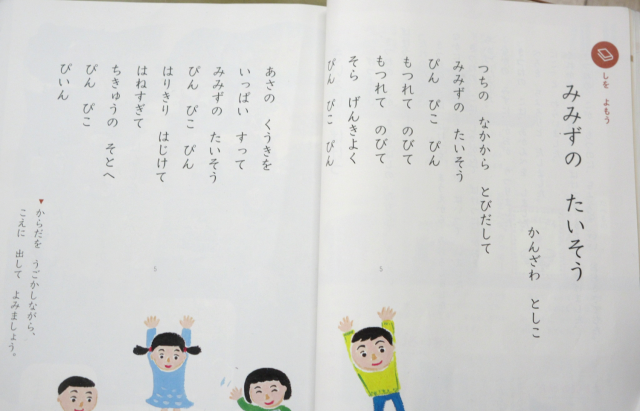 しを　よもう
みみずの　たいそう
かんざわ　としこ
つちの　なかから　とびだして
みみずの　たいそう
ぴん　ぴこ　ぴん
もつれて　のびて
もつれて　のびて
そら　げんきよく
ぴん　ぴこ　ぴん
あさの　くうきを
いっぱい　すって
みみずの　たいそう
ぴん　ぴこ　ぴん
はりきり　はじけて
はねすぎて
ちきゅうの　そとへ
ぴん　ぴこ
ぴいん
▼からだを　うごかしながら、
こえに　出して　よみましょう。